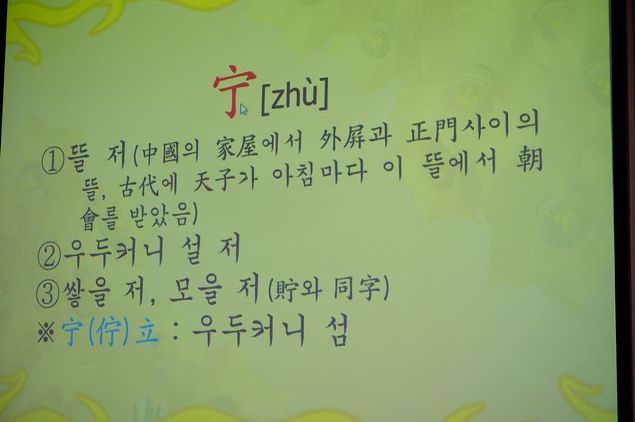 宁 [zhù]
①뜰 저(中國의 家屋에서 外屛과 正門사이의
뜰, 古代에 天子가 아침마다 이 뜰에서 朝
會를 받았음)
②우두커니 설 저
③쌓을 저, 모을 저(貯와 同字)
※宁(佇)立 : 우두커니 섬